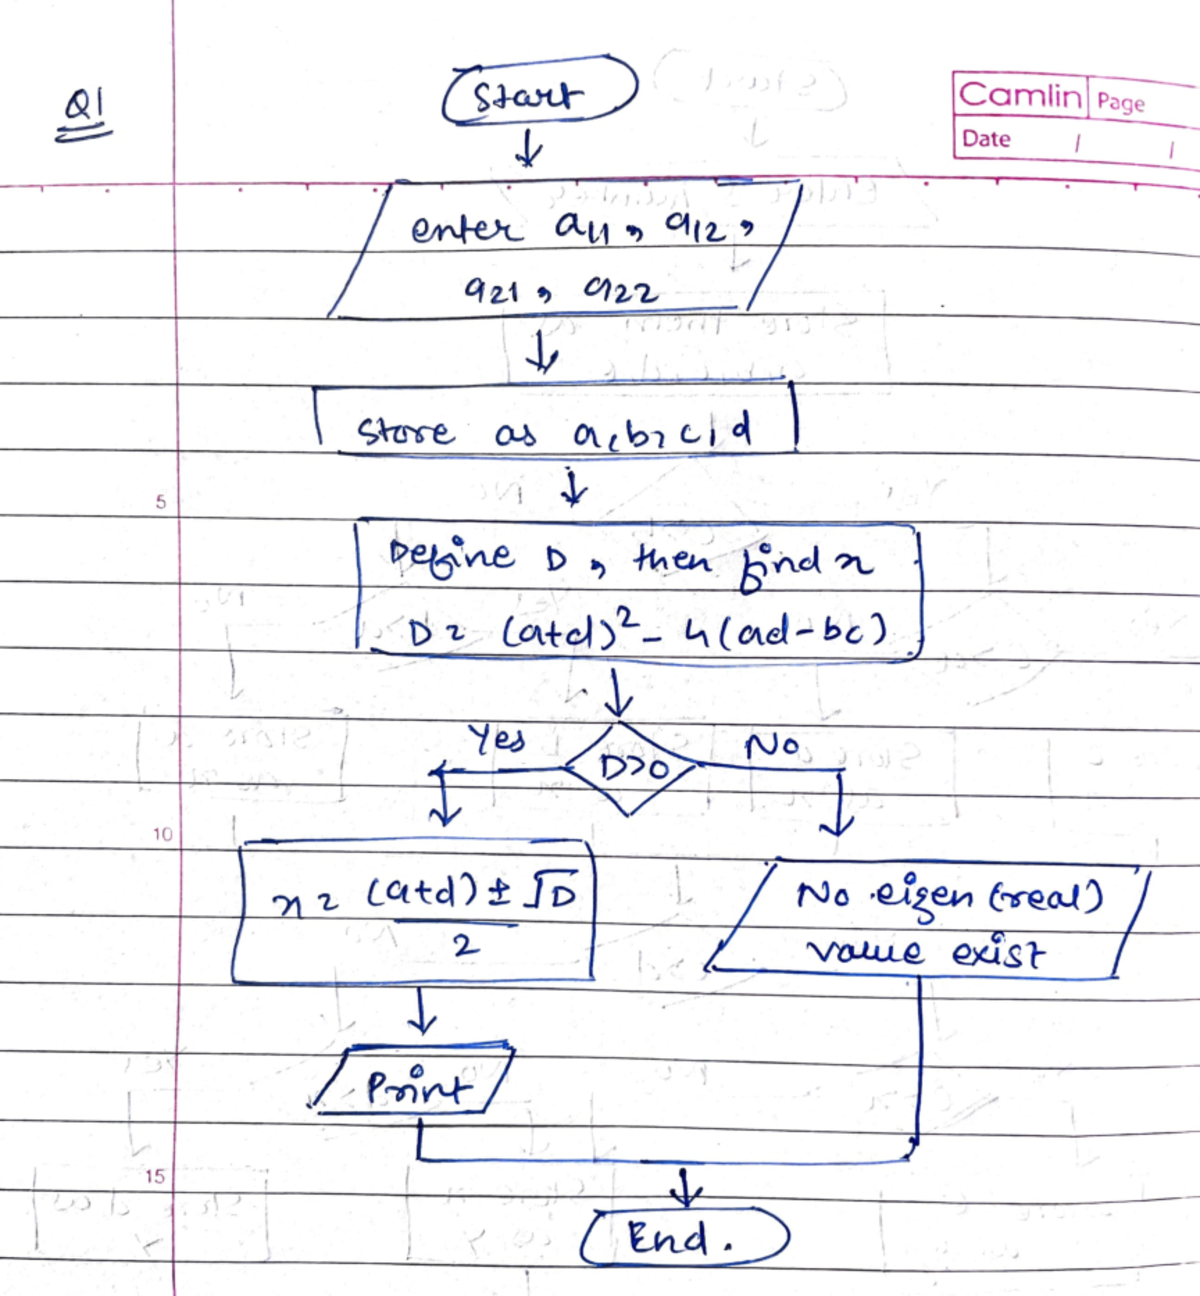 Q1
Start
Camlin Page
Date / /
enter a11, a12,
a21, a22
Store as a, b, c, d
Define D, then find x
D = (a+d)² - 4(ad-bc)
Yes
D>0
No
x = (a+d) ± √D
2
No eigen (real)
value exist
Print
End.
5
10
15